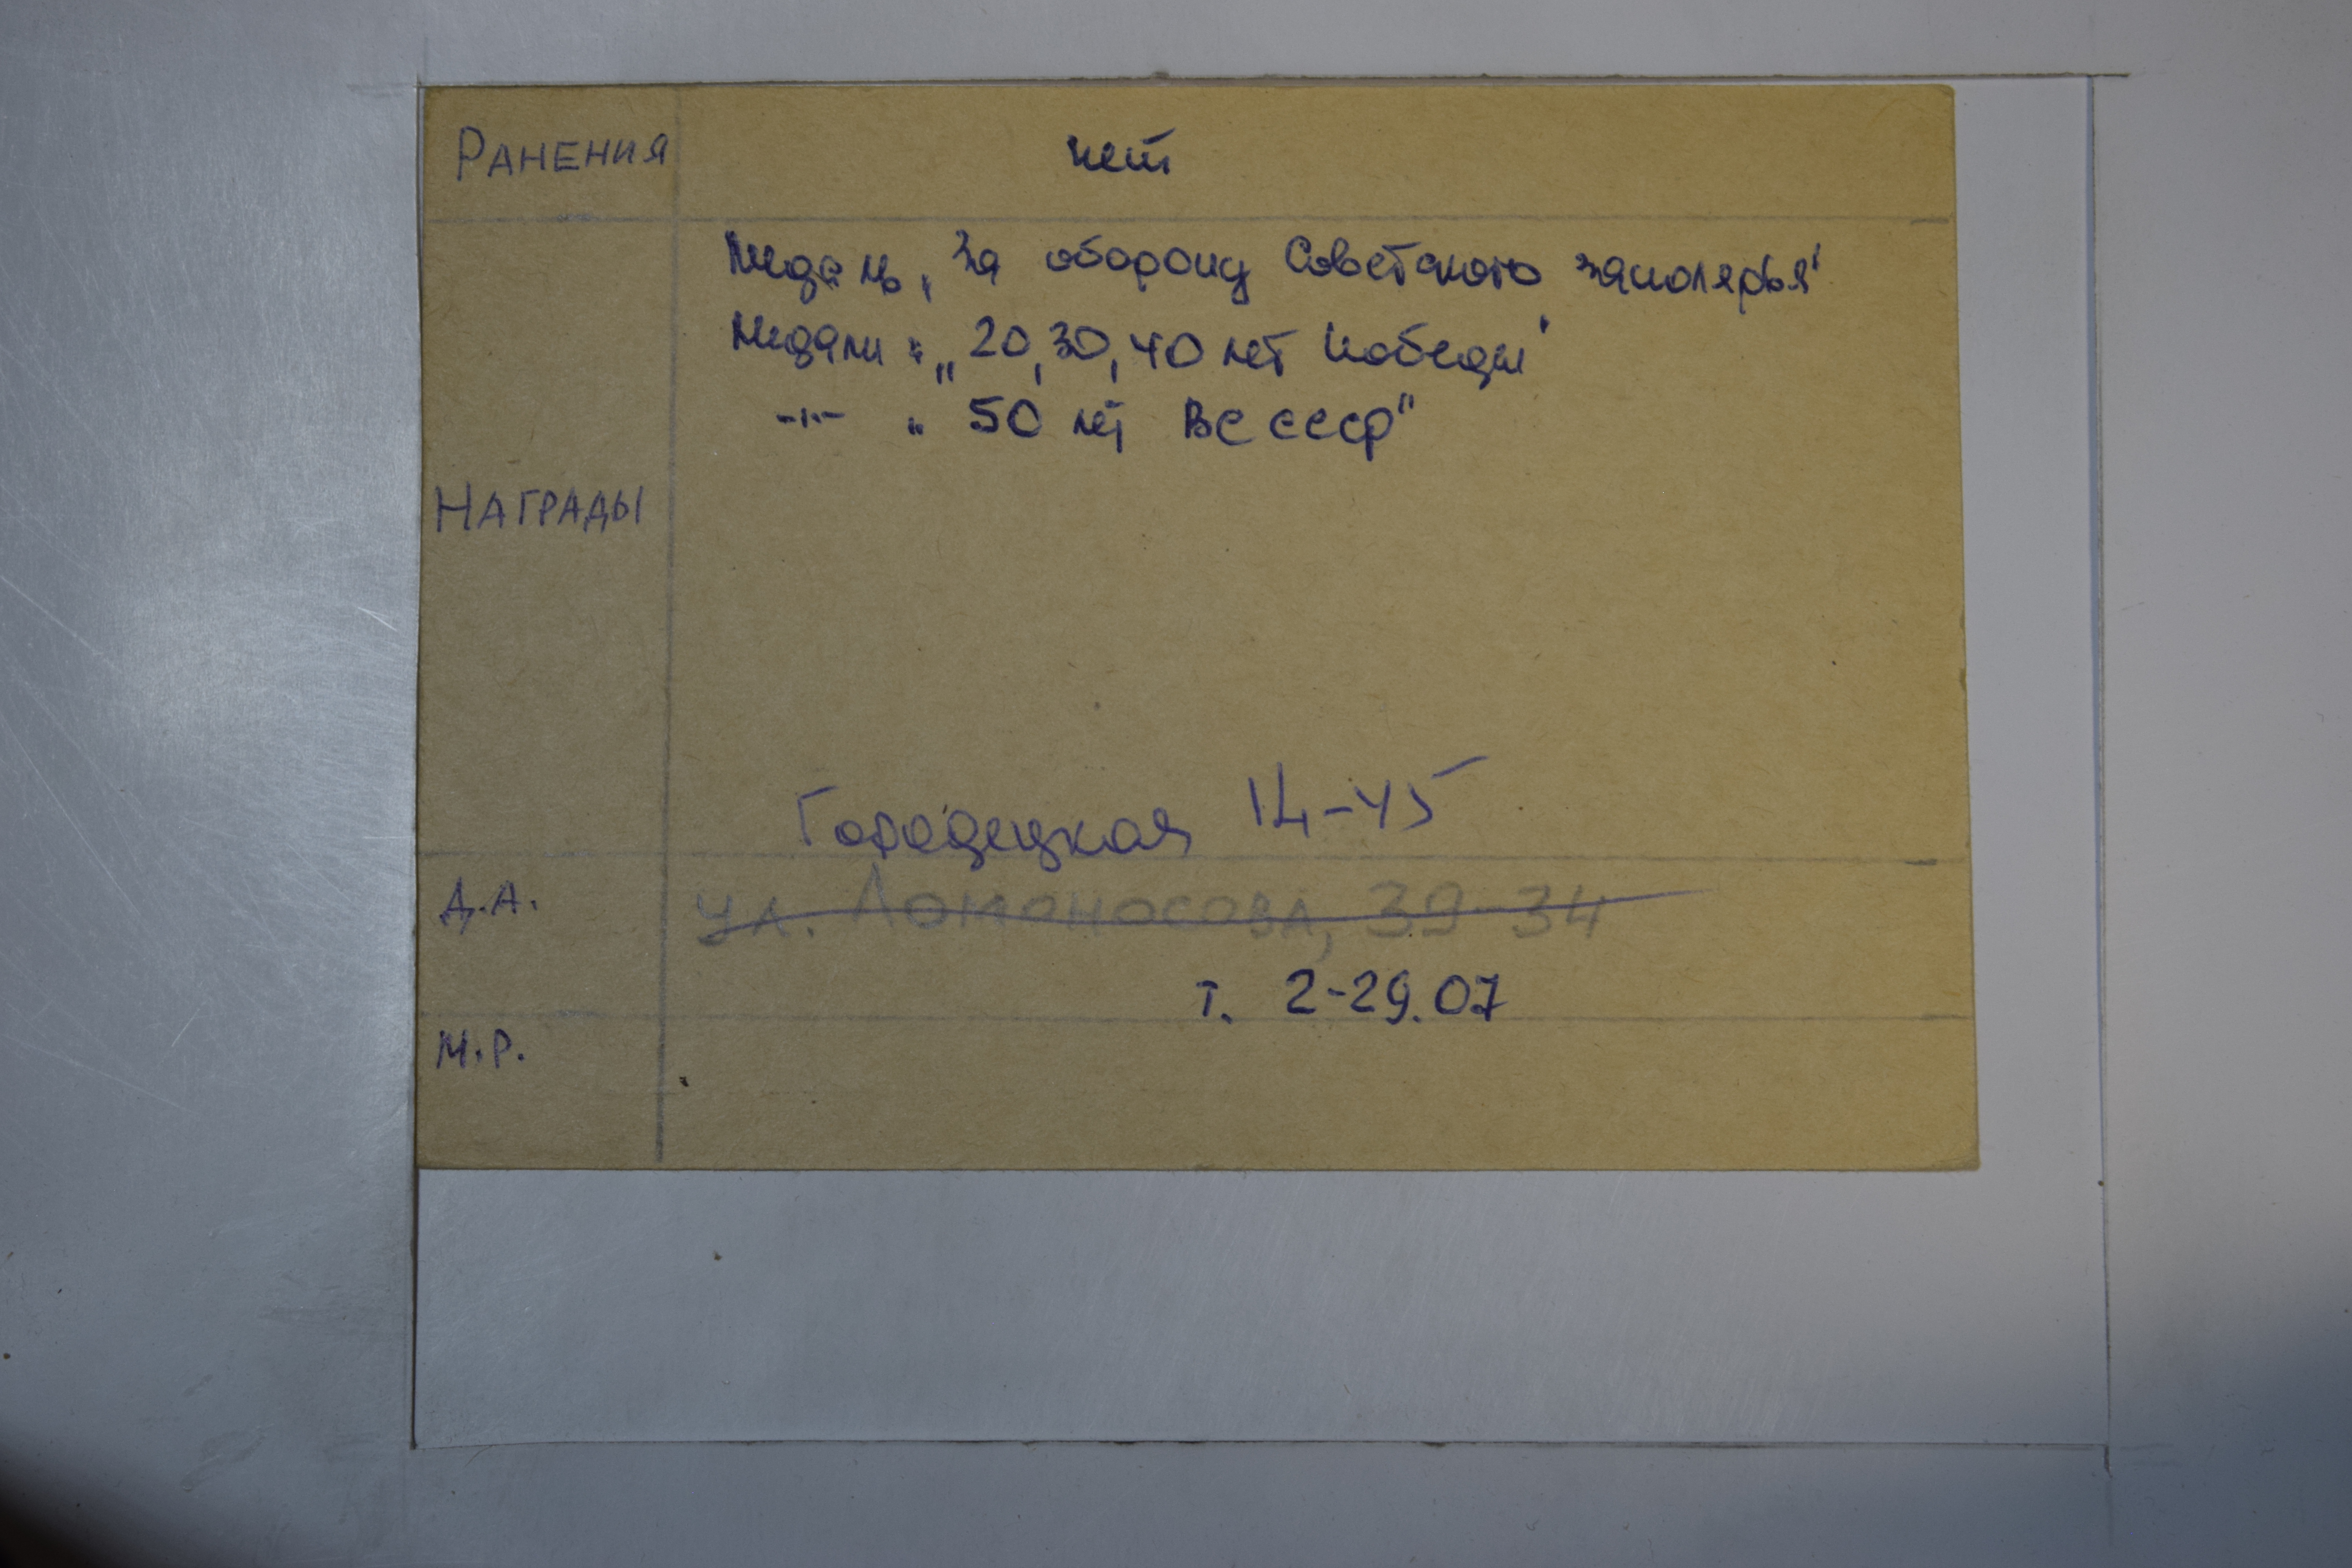 РАНЕНИЯ нет
Медаль „За оборону Советского заполярья"
Медали: „20, 30, 40 лет Победы"
-"- „50 лет ВС СССР"
НАГРАДЫ
Городецкая 14-45
Д.А. ул. Ломоносова, 39-34
т. 2-29.07
М.Р.